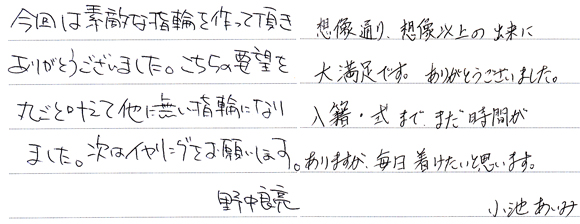 今回は素敵な指輪を作って頂き
ありがとうございました。こちらの要望を
丸ごと叶えて他に無い指輪になり
ました。次はイヤリングをお願いします。
野中良亮
想像通り、想像以上の出来に
大満足です。ありがとうございました。
入籍・式まで、まだ時間が
ありますが、毎日着けたいと思います。
小池あいみ